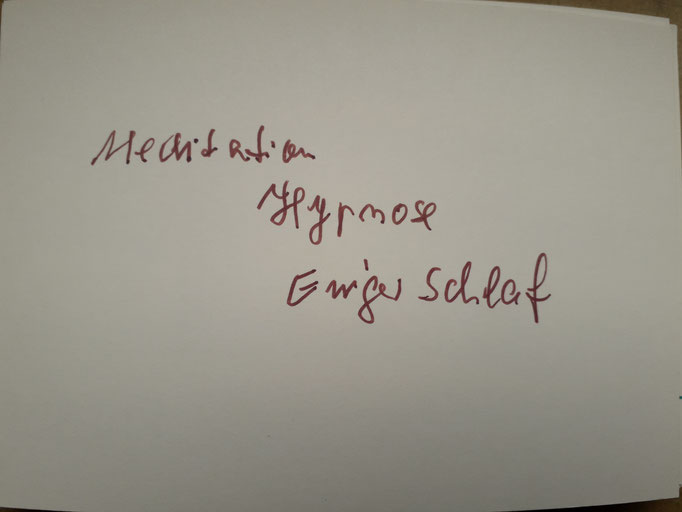 Meditation
Hypnose
Ewiger Schlaf